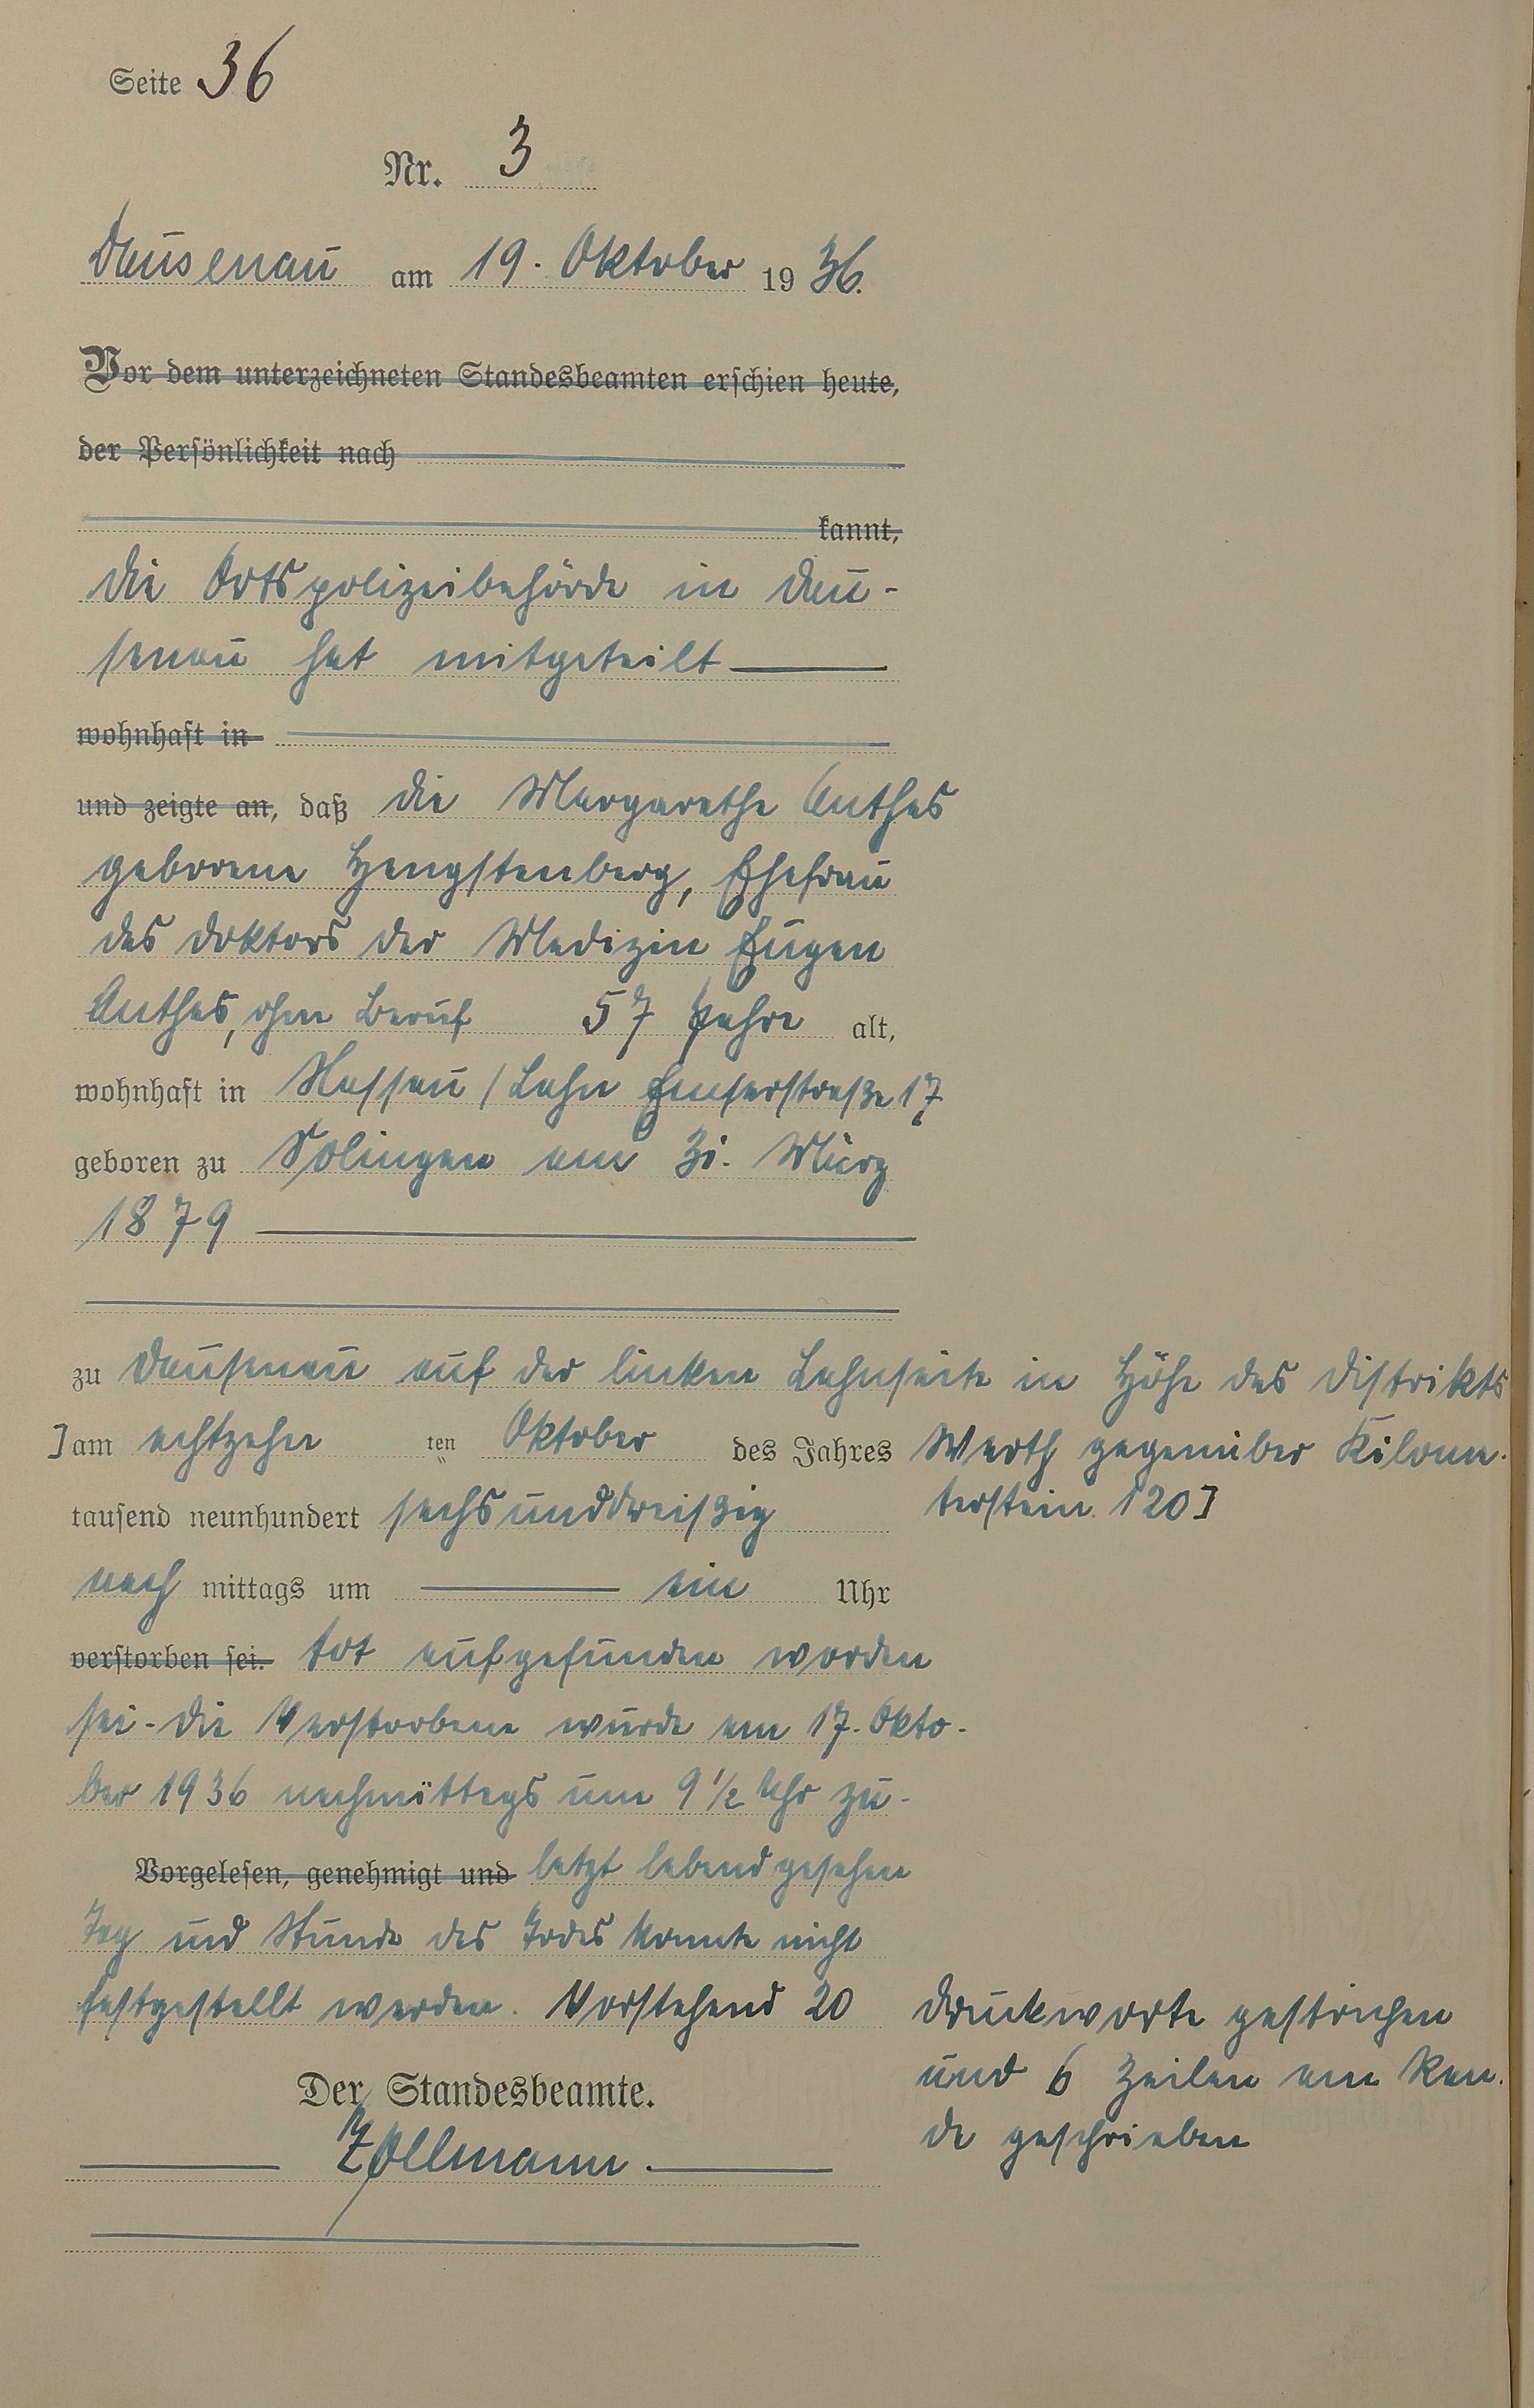 Seite 36
Nr. 3
Dausenau am 19. Oktober 1936.
Vor dem unterzeichneten Standesbeamten erschien heute,
der Persönlichkeit nach
kannt,
die Ortspolizeibehörde in Dau-
senau hat mitgeteilt
wohnhaft in
und zeigte an, daß die Margarethe Anthes
geborene Hengstenberg, Ehefrau
des Doktors der Medizin Eugen
Anthes, ohne Beruf 57 Jahre alt,
wohnhaft in Nassau / Lahn Emserstraße 17
geboren zu Solingen am 31. März
1879
zu Dausenau auf der linken Lahnseite in Höhe des Distrikts
] am achtzehn ten Oktober des Jahres Werth gegenüber Kilome-
tausend neunhundert sechsunddreißig terstein 120]
nach mittags um ein Uhr
verstorben sei. tot aufgefunden worden
sei. Die Verstorbene wurde am 17. Okto-
ber 1936 nachmittags um 9 1/2 Uhr zu-
Vorgelesen, genehmigt und letzt lebend gesehen
Tag und Stunde des Todes konnte nicht
festgestellt werden. Vorstehend 20 Druckworte gestrichen
und 6 Zeilen am Ran-
de geschrieben
Der Standesbeamte.
Zollmann.